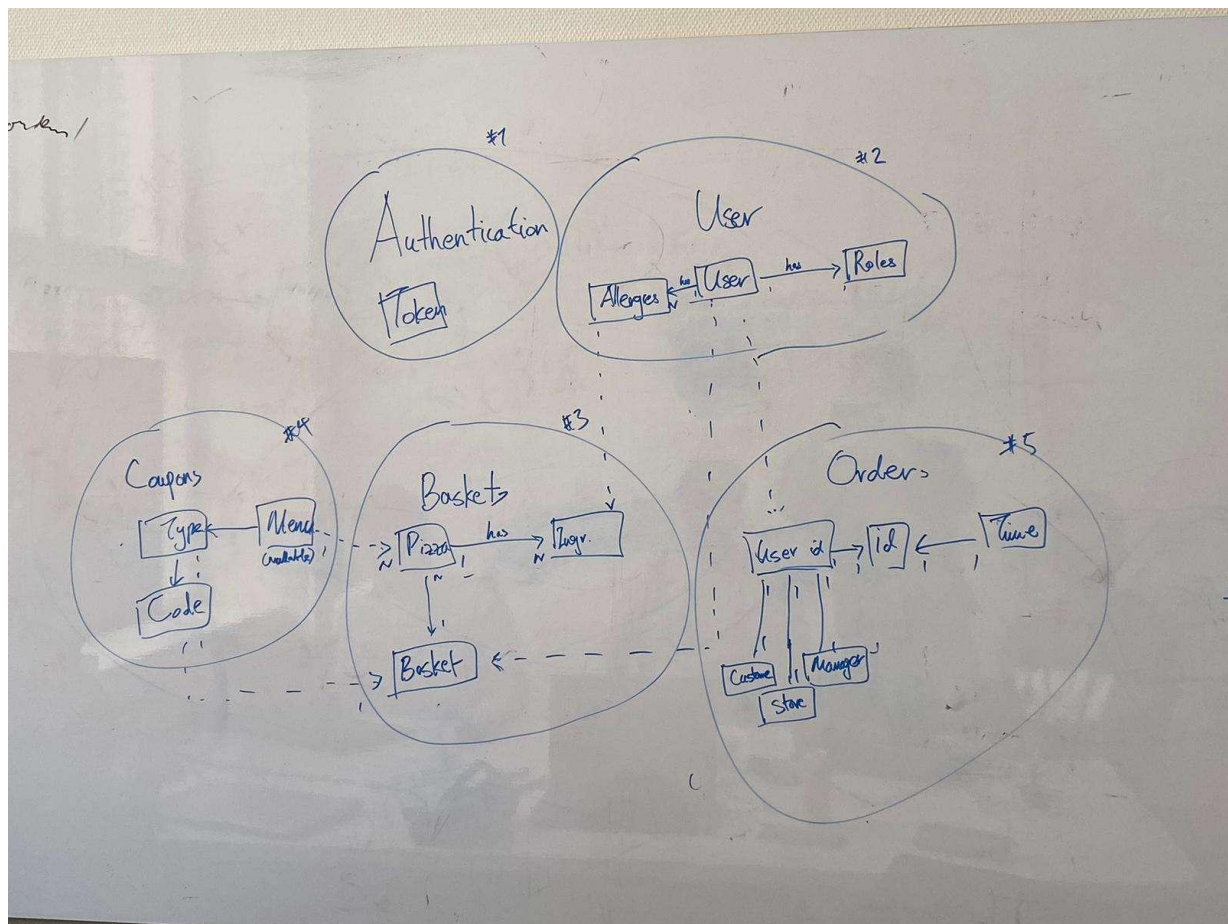 #1
Authentication
Token
#2
User
Allergies
has
User
has
Roles
N
1
1
1
#4
Coupons
Type
Menu
(available)
Code
1
1
1
#3
Baskets
Pizza
has
Ingr.
N
1
N
N
1
Basket
1
#5
Orders
User id
id
Time
1
1
1
1
1
1
1
Custome
Store
Manager
1